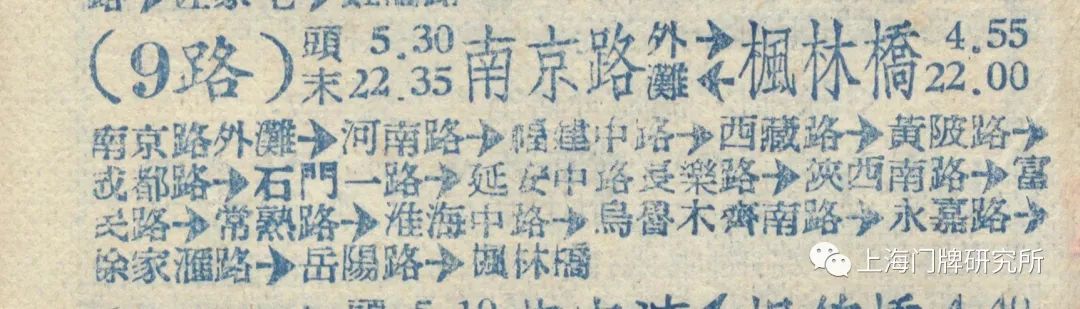 (9路) 頭 5.30 南京路 外→ 楓林橋 4.55
末 22.35 灘← 22.00
南京路外灘→河南路→福建中路→西藏路→黃陂路→
成都路→石門一路→延安中路長樂路→陝西南路→富
民路→常熟路→淮海中路→烏魯木齊南路→永嘉路→
徐家滙路→岳陽路→楓林橋
上海门牌研究所